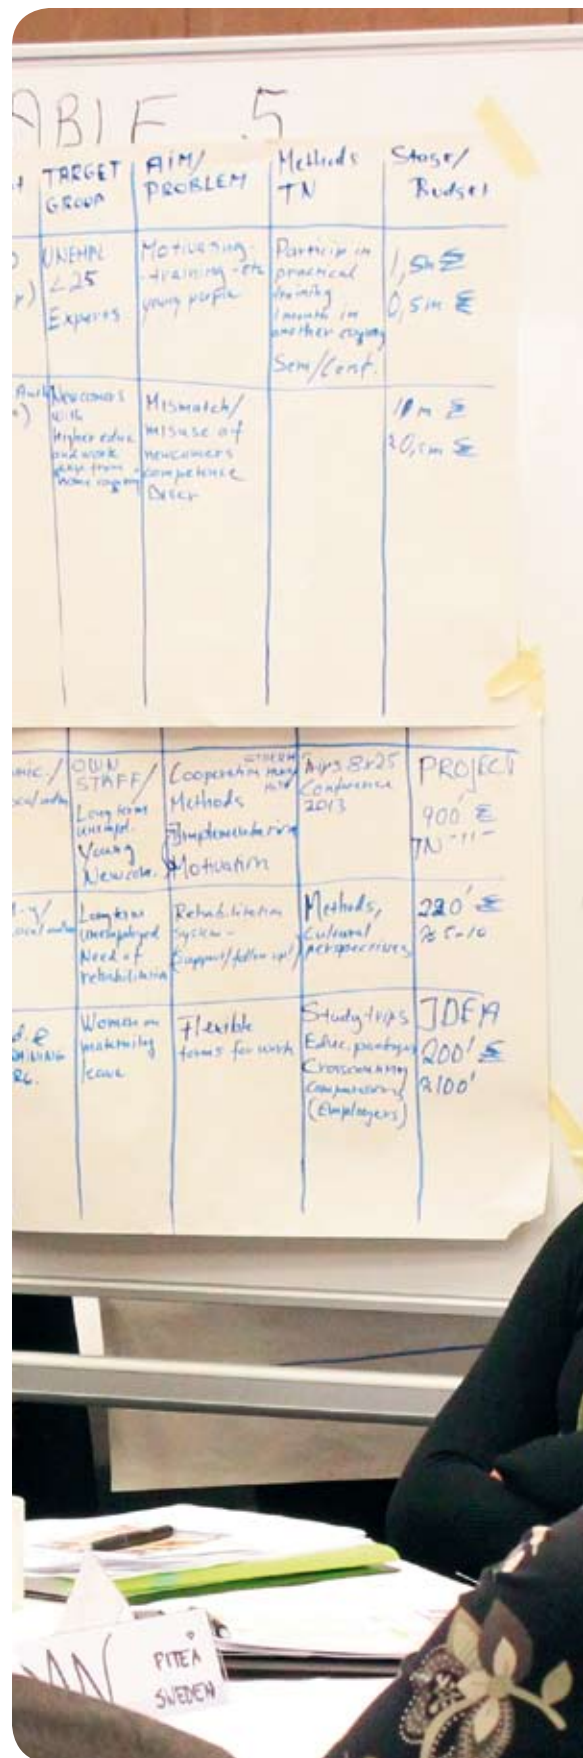 TABLE 5
TARGET
GROUP
AIM/
PROBLEM
Methods
TN
Stage/
Budget
UNEMPL
<25
Experts
Motivating -
- training - etc
young people
Particip in
practical
training
1 month in
another country
Sem/Conf.
1,5m €
0,5m €
Newcomers
with
higher educ
and work
exp from
home country
Mismatch/
misuse of
newcomers
competence
Discr
1m €
0,5m €
OWN
STAFF/
Long term
unempl.
Young
Newcom.
Cooperation
Methods
Implementering
Motivation
Conference
2013
PROJECT
900' €
TN -"-
Long term
unemployed
Need of
rehabilitation
Rehabilitation
system -
(support/follow up!)
Methods,
cultural
perspectives
220' €
% 5-10
Women on
maternity
leave
Flexible
forms for work
Study trips
Educ. packages
Crosscountry
comparisons
(Employers)
IDEA
200' €
2100'
PITEÅ
SWEDEN